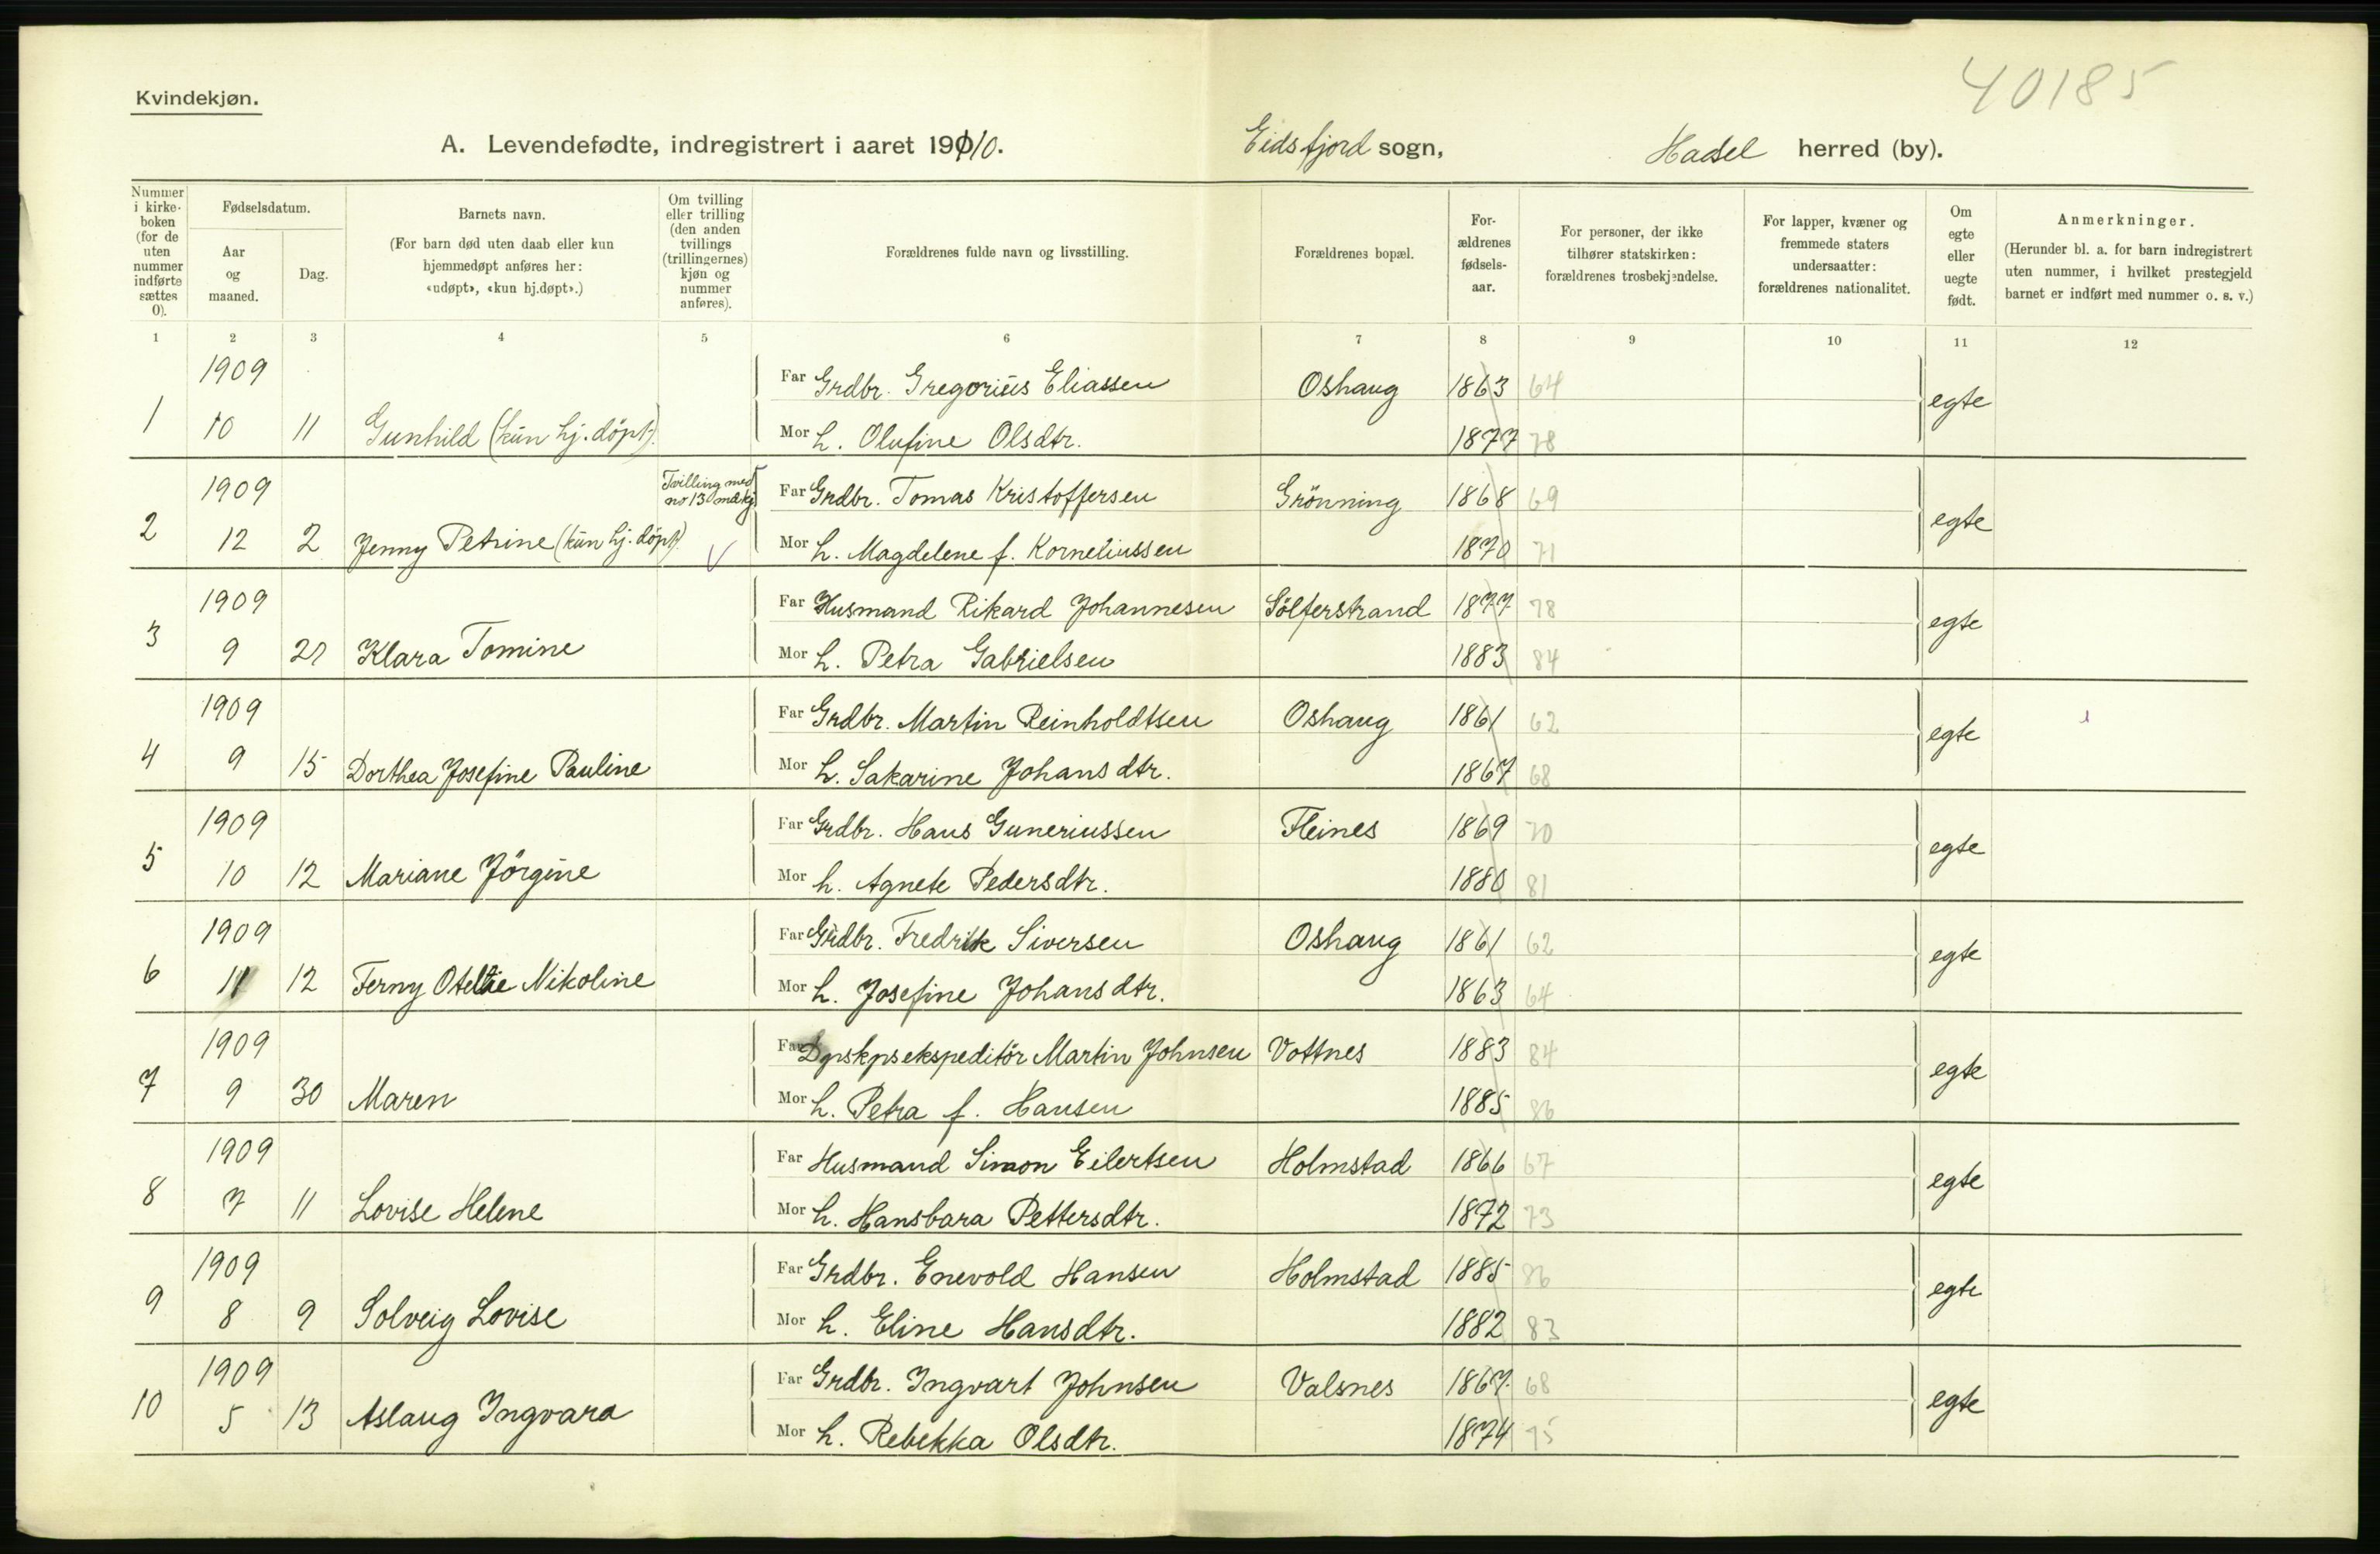 40185
Kvindekjøn.
A. Levendefødte, indregistrert i aaret 1910. Eidsfjord sogn, Hadsel herred (by).
Nummer i kirkeboken (for de uten nummer indførte sættes 0). Fødselsdatum. Aar og maaned. Dag. Barnets navn. (For barn død uten daab eller kun hjemmedøpt anføres her: «udøpt», «kun hj.døpt».) Om tvilling eller trilling (den anden tvillings (trillingernes) kjøn og nummer anføres). Forældrenes fulde navn og livsstilling. Forældrenes bopæl. Forældrenes fødselsaar. For personer, der ikke tilhører statskirken: forældrenes trosbekjendelse. For lapper, kvæner og fremmede staters undersaatter: forældrenes nationalitet. Om egte eller uegte født. Anmerkninger. (Herunder bl. a. for barn indregistrert uten nummer, i hvilket prestegjeld barnet er indført med nummer o. s. v.)
1 2 3 4 5 6 7 8 9 10 11 12
1909 Far Grdbr. Gregorius Eliassen Oshaug 1863 64
1 10 11 Gunhild (kun hj. döpt). Mor h. Olufine Olsdtr. 1877 78 egte
1909 Tvilling med no 13 mdkj. Far Grdbr. Tomas Kristoffersen Grönning 1868 69
2 12 2 Jenny Petrine (kun hj. döpt) Mor h. Magdelene f. Korneliussen 1870 71 egte
1909 Far Husmand Rikard Johannesen Sölferstrand 1877 78
3 9 21 Klara Tomine Mor h. Petra Gabrielsen 1883 84 egte
1909 Far Grdbr. Martin Reinholdtsen Oshaug 1861 62
4 9 15 Dorthea Josefine Pauline Mor h. Sakarine Johansdtr. 1867 68 egte
1909 Far Grdbr. Hans Guneriussen Fleines 1869 70
5 10 12 Mariane Jörgine Mor h. Agnete Pedersdtr. 1880 81 egte
1909 Far Grdbr. Fredrik Siversen Oshaug 1861 62
6 11 12 Ferny Otelie Nikoline Mor h. Josefine Johansdtr. 1863 64 egte
1909 Far Dpskpsekspeditör Martin Johnsen Vottnes 1883 84
7 9 30 Maren Mor h. Petra f. Hansen 1885 86 egte
1909 Far Husmand Simon Eilertsen Holmstad 1866 67
8 7 11 Lovise Helene Mor h. Hansbara Pettersdtr. 1872 73 egte
1909 Far Grdbr. Enevold Hansen Holmstad 1885 86
9 8 9 Solveig Lovise Mor h. Eline Hansdtr. 1882 83 egte
1909 Far Grdbr. Ingvart Johnsen Valsnes 1867 68
10 5 13 Aslaug Ingvara Mor h. Rebekka Olsdtr. 1874 75 egte